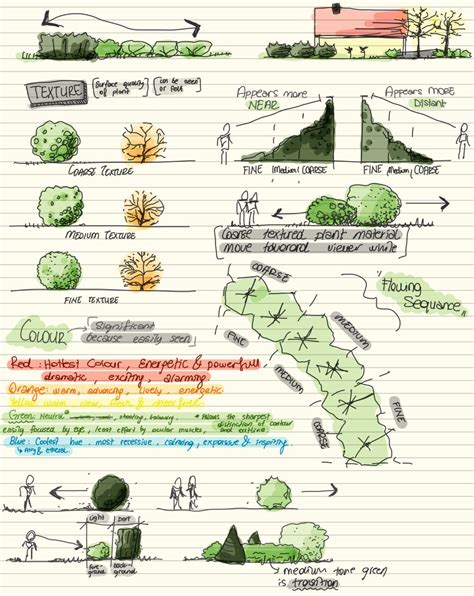 TEXTURE
Surface quality of plant
can be seen or felt
Appears more NEAR
Appears MORE Distant
COARSE TEXTURE
FINE MEDIUM COARSE
FINE MEDIUM COARSE
MEDIUM TEXTURE
Coarse textured plant material
move toward viewer while
FINE TEXTURE
COARSE
FINE
MEDIUM
MEDIUM
FINE
COARSE
Flowing
Sequance
COLOUR
Significant
because easily seen
Red: Hottest Colour, Energetic & powerfull
dramatic, exciting, alarming
Orange: warm, advancing, lively, energetic
Yellow: warm, clear, &
Green: Neutral
Allows the sharpest
distinction of contour
easily focused by eye, least effort by ocular muscles, and outline
Blue: Coolest hue, most recessive, calming, expansive & inspiring
Airy & etherial
Light
Dark
fore-ground
back-ground
medium tone green
is transition